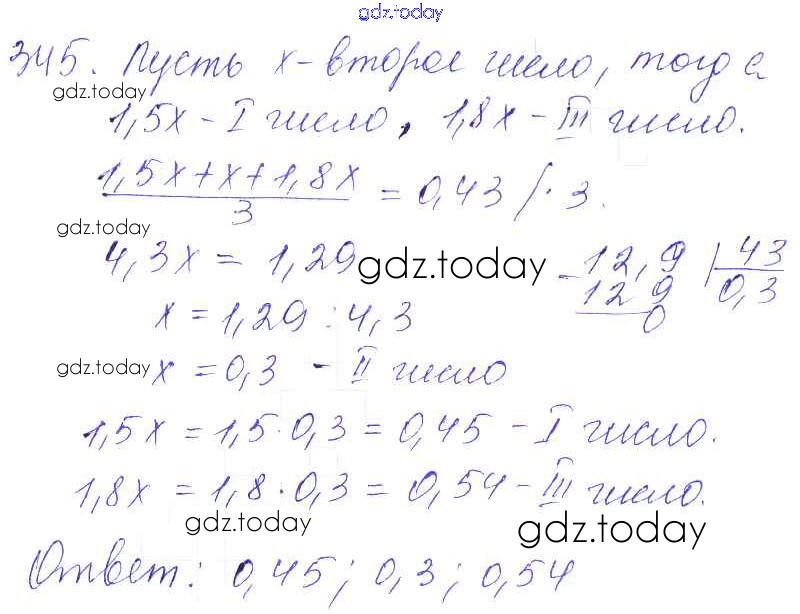 gdz.today
345. Пусть x - второе число, тогда
gdz.today
1,5x - I число, 1,8x - III число.
1,5x+x+1,8x
3
= 0,43 /· 3.
gdz.today
4,3x = 1,29
gdz.today
- 12,9 | 43
129 0,3
0
x = 1,29 : 4,3
gdz.today
x = 0,3 - II число
1,5x = 1,5·0,3 = 0,45 - I число.
1,8x = 1,8·0,3 = 0,54 - III число.
gdz.today
gdz.today
Ответ: 0,45; 0,3; 0,54